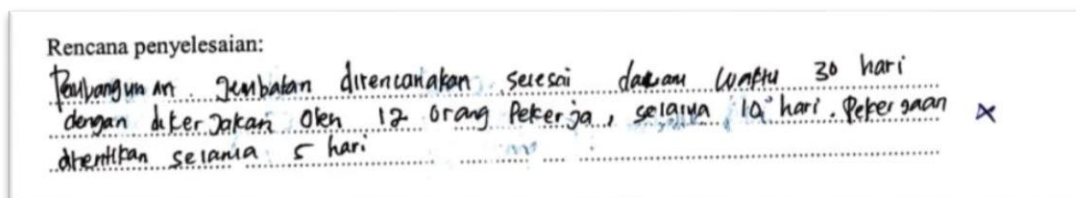 Rencana penyelesaian:
Pembangunan Jembatan direncanakan selesai dalam waktu 30 hari
dengan dikerjakan oleh 12 orang Pekerja, selama 10 hari. Pekerjaan
dihentikan selama 5 hari